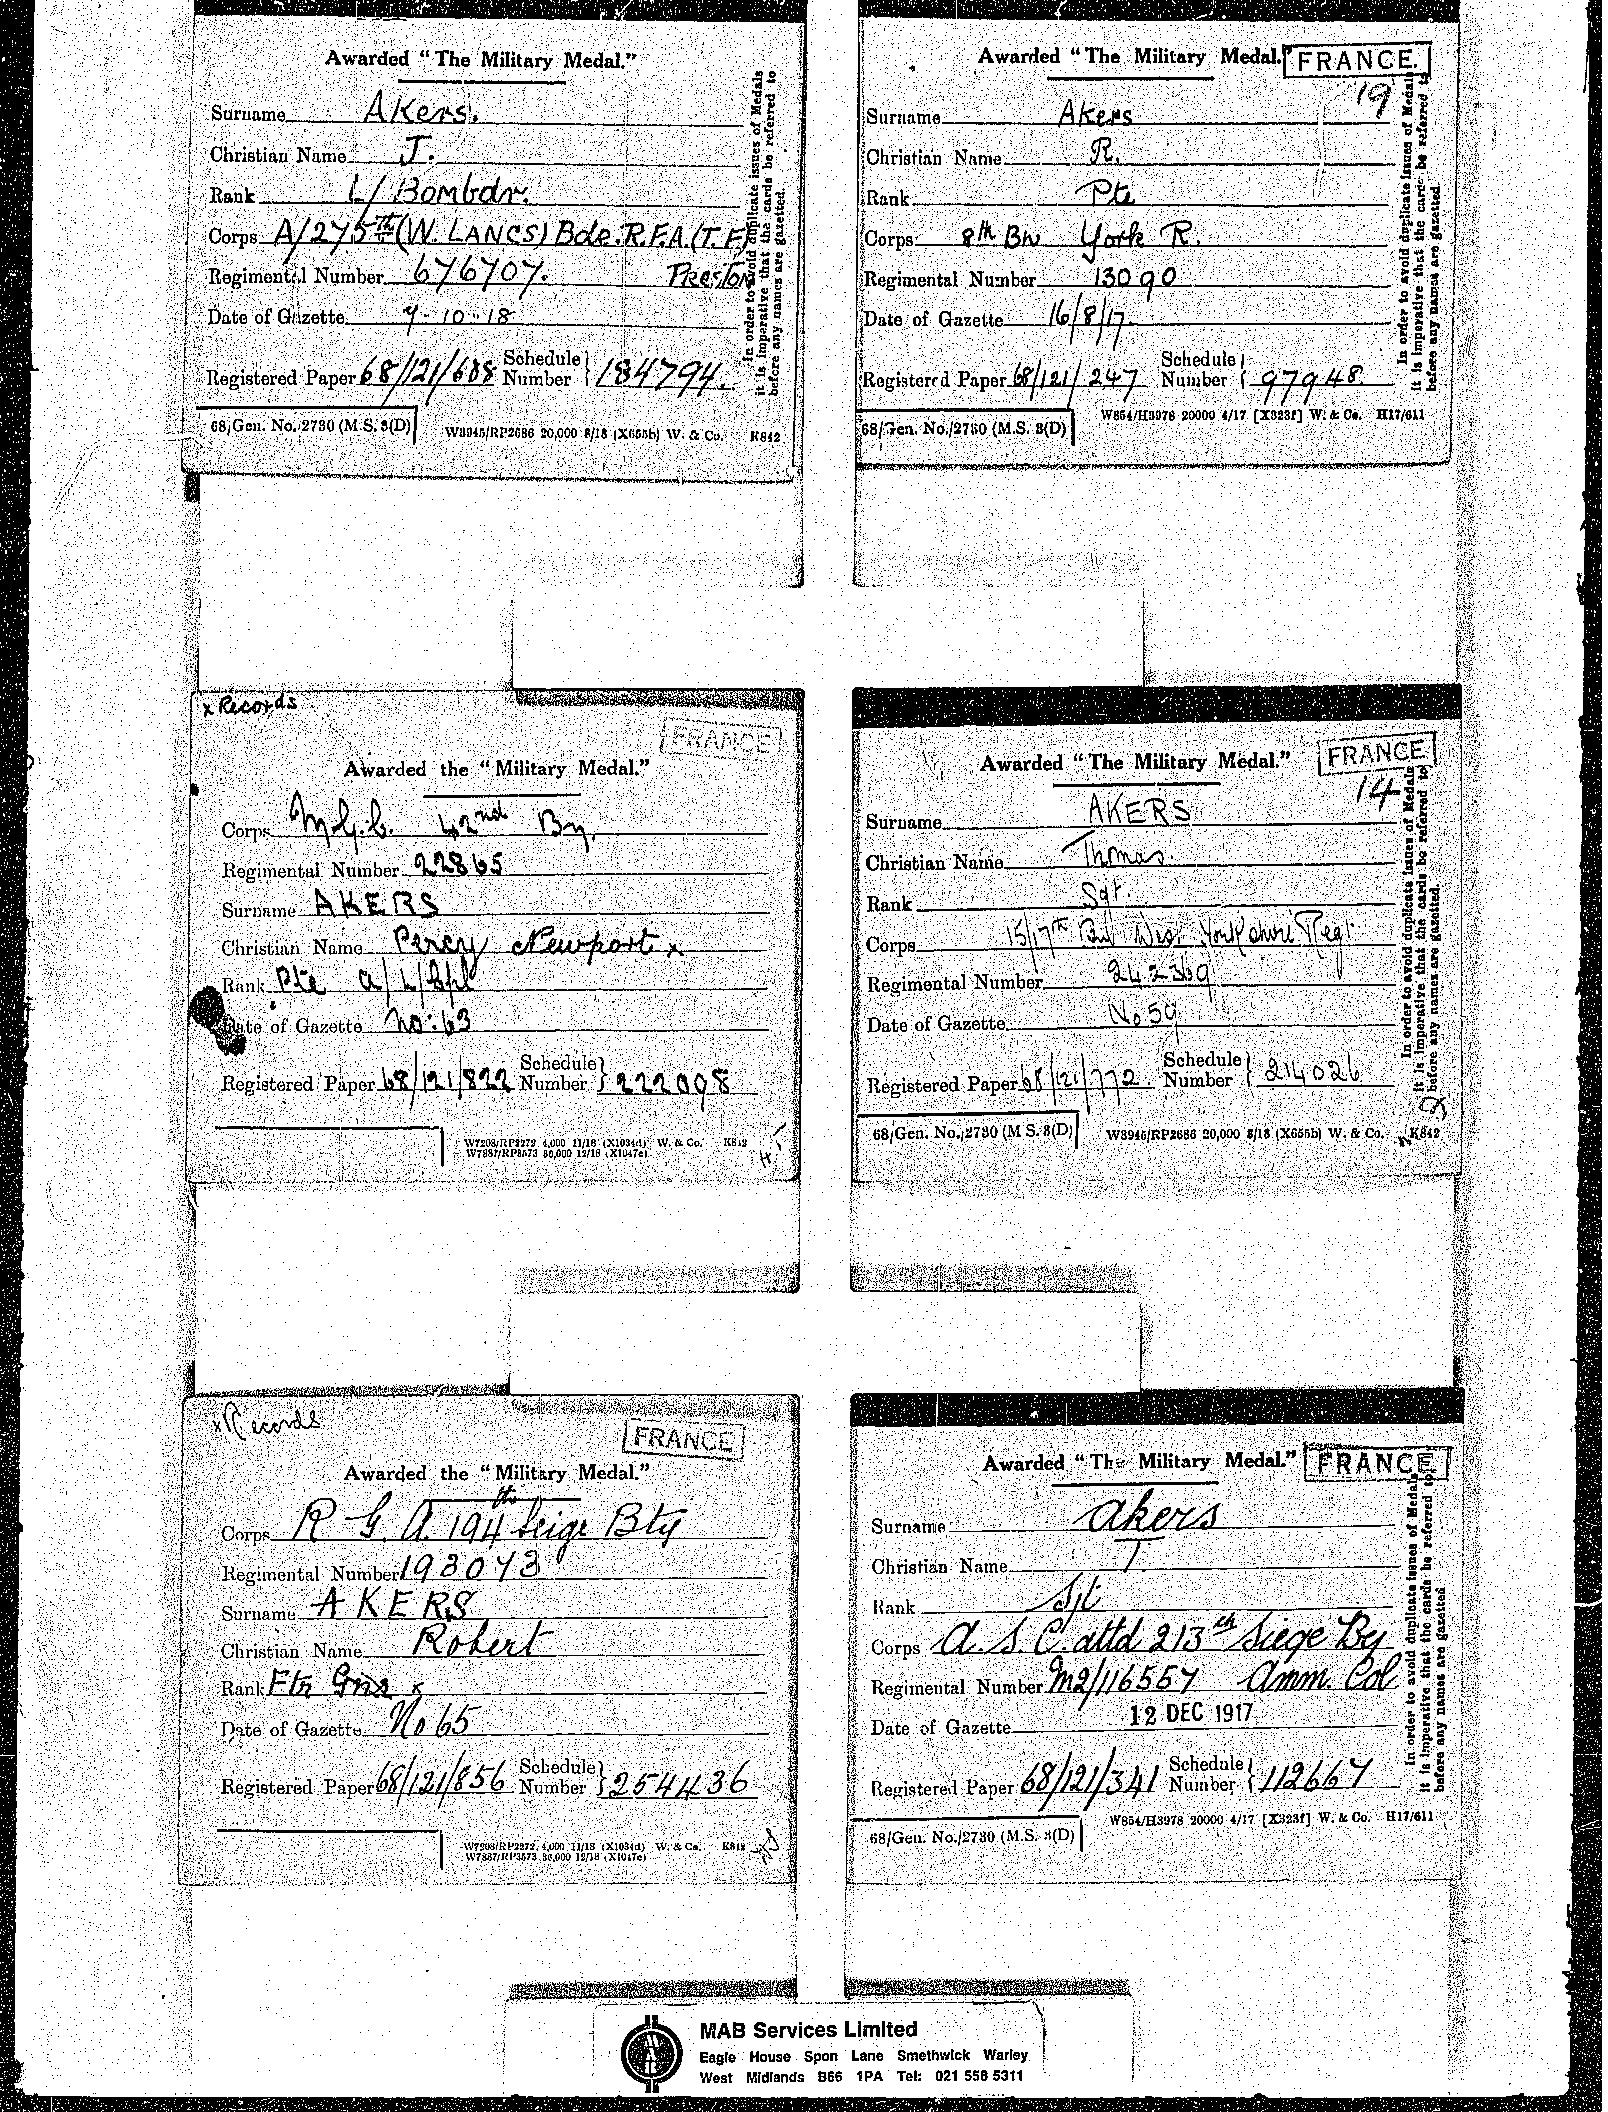 Awarded "The Military Medal."
Surname Akers.
Christian Name J.
Rank L/Bombdr.
Corps A/275th (W. LANCS) Bde. R.F.A. (T.F)
Regimental Number 676707. PRESTON
Date of Gazette 7-10-18
Registered Paper 68/121/688 Schedule Number 184794.
68/Gen. No./2730 (M.S. 3(D) W3945/RP2686 20,000 8/18 (X655b) W. & Co. K842
In order to avoid duplicate issues of Medals
it is imperative that the cards be referred to
before any names are gazetted.
Awarded "The Military Medal." FRANCE.
19
Surname Akers
Christian Name R.
Rank Pte
Corps 8th Bn York R.
Regimental Number 13090
Date of Gazette 16/8/17
Registered Paper 68/121/247 Schedule Number 97948.
W854/H3978 20000 4/17 [X323f] W. & Co. H17/611
68/Gen. No./2730 (M.S. 3(D)
In order to avoid duplicate issues of Medals
it is imperative that the cards be referred to
before any names are gazetted.
x Records
FRANCE
Awarded the "Military Medal."
Corps M.G.C. 42nd Bn.
Regimental Number 22865
Surname AKERS
Christian Name Percy Newport x
Rank Pte a/L/Cpl
Date of Gazette No: 63
Registered Paper 68/121/822 Schedule Number 222008
W7208/RP2272 4,000 11/18 (X1034d) W. & Co. K842
W7887/RP3573 30,000 12/18 (X1047e)
Awarded "The Military Medal." FRANCE
14
Surname AKERS
Christian Name Thomas.
Rank Sgt.
Corps 15/17th Bn West Yorkshire Regt.
Regimental Number 242369
Date of Gazette No 59
Registered Paper 68/121/772 Schedule Number 214026
68/Gen. No./2730 (M.S. 3(D) W3945/RP2686 20,000 8/18 (X655b) W. & Co. K842
In order to avoid duplicate issues of Medals
it is imperative that the cards be referred to
before any names are gazetted.
x Records
FRANCE
Awarded the "Military Medal."
Corps R G A. 194th Seige Bty
Regimental Number 193073
Surname AKERS
Christian Name Robert
Rank Ftr Gnr x
Date of Gazette No 65
Registered Paper 68/121/856 Schedule Number 254436
W7208/RP2272 4,000 11/18 (X1034d) W. & Co. K842
W7887/RP3573 30,000 12/18 (X1047e)
Awarded "The Military Medal." FRANCE
Surname Akers
Christian Name
Rank Sjt
Corps A.S.C. attd 213th Siege By
Regimental Number M2/116557 Amm. Col
Date of Gazette 12 DEC 1917
Registered Paper 68/121/341 Schedule Number 112667
W854/H3978 20000 4/17 [X323f] W. & Co. H17/611
68/Gen. No./2730 (M.S. 3(D)
In order to avoid duplicate issues of Medals
it is imperative that the cards be referred to
before any names are gazetted
MAB Services Limited
Eagle House Spon Lane Smethwick Warley
West Midlands B66 1PA Tel: 021 558 5311